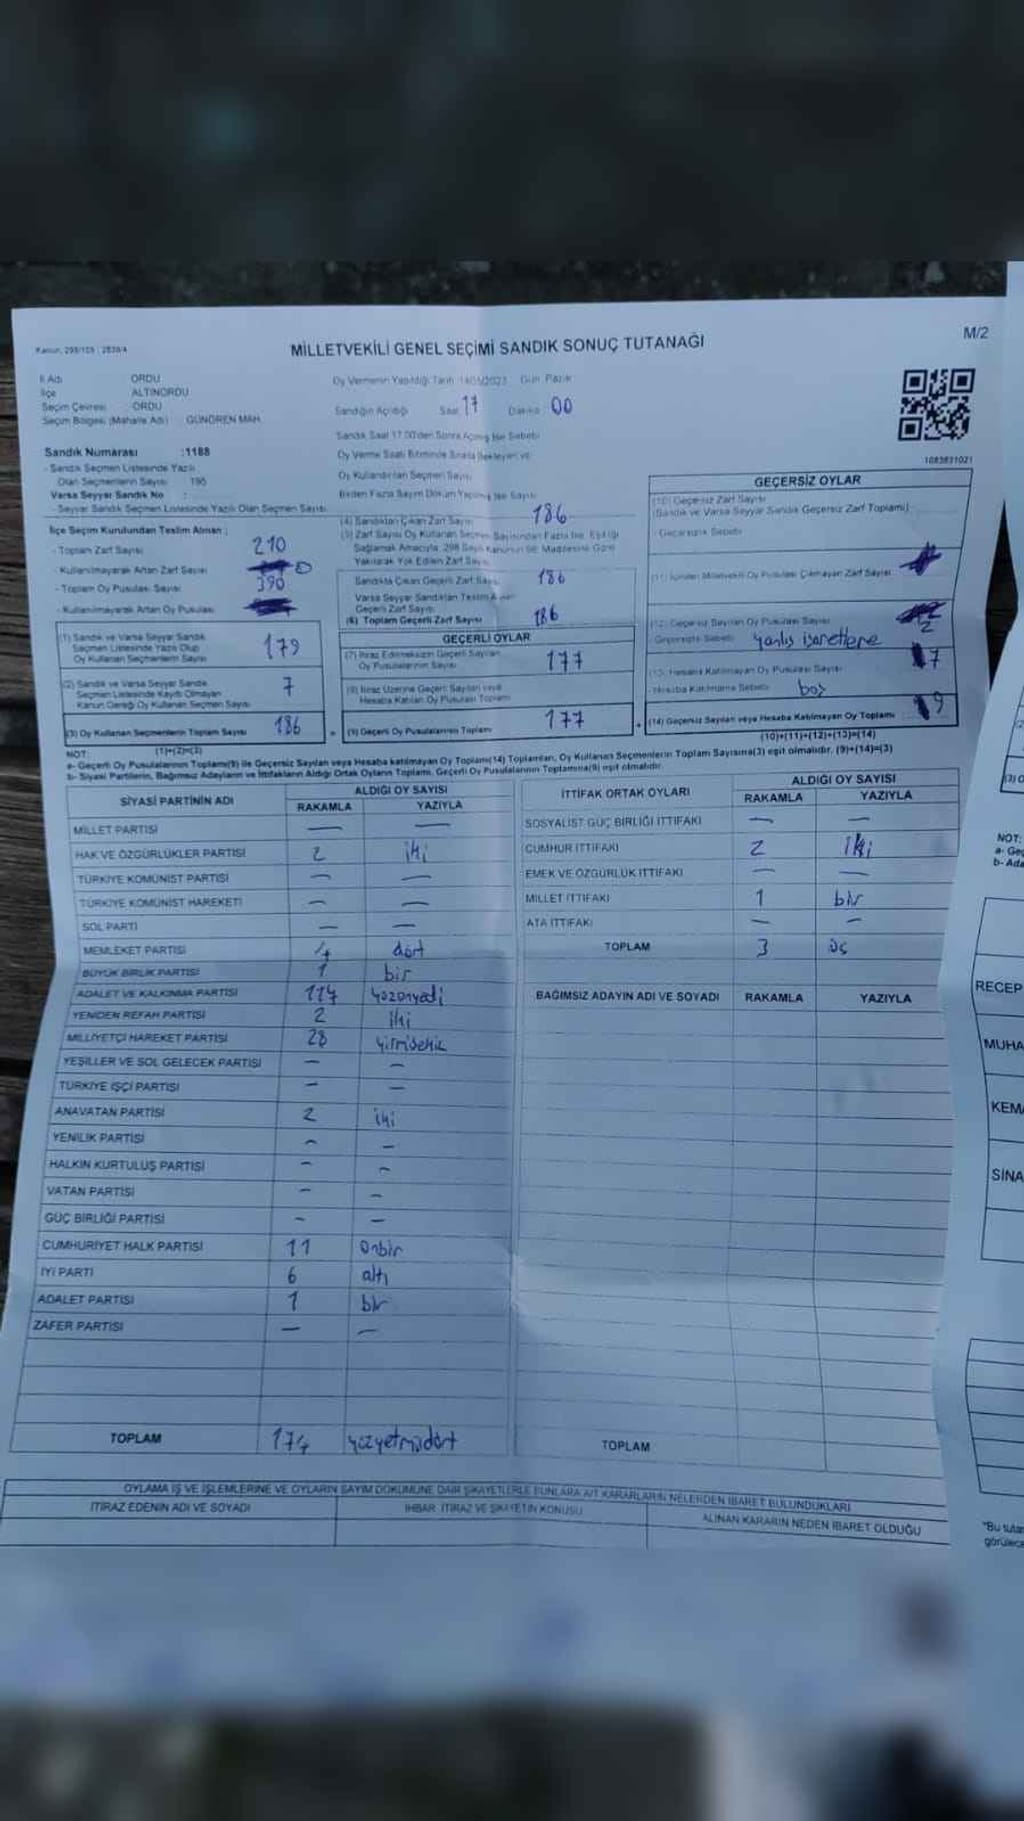 M/2
Kanun: 298/105 ; 2839/4
MİLLETVEKİLİ GENEL SEÇİMİ SANDIK SONUÇ TUTANAĞI
İl Adı ORDU
İlçe ALTINORDU
Seçim Çevresi ORDU
Seçim Bölgesi (Mahalle Adı) GÜNÖREN MAH.
Oy Vermenin Yapıldığı Tarih 14/05/2023 Gün: Pazar
Sandığın Açıldığı Saat 17 Dakika 00
Sandık Saat 17.00'den Sonra Açılmış İse Sebebi
Oy Verme Saati Bitiminde Sırada Bekleyen ve
Oy Kullandırılan Seçmen Sayısı
Birden Fazla Sayım Döküm Yapılmış İse Sayısı
1083831021
Sandık Numarası :1188
- Sandık Seçmen Listesinde Yazılı
Olan Seçmenlerin Sayısı 195
Varsa Seyyar Sandık No :
- Seyyar Sandık Seçmen Listesinde Yazılı Olan Seçmen Sayısı
İlçe Seçim Kurulundan Teslim Alınan ;
- Toplam Zarf Sayısı 210
- Kullanılmayarak Artan Zarf Sayısı
- Toplam Oy Pusulası Sayısı 390
- Kullanılmayarak Artan Oy Pusulası
(1) Sandık ve Varsa Seyyar Sandık
Seçmen Listesinde Yazılı Olup
Oy Kullanan Seçmenlerin Sayısı 179
(2) Sandık ve Varsa Seyyar Sandık
Seçmen Listesinde Kayıtlı Olmayan
Kanun Gereği Oy Kullanan Seçmen Sayısı 7
(3) Oy Kullanan Seçmenlerin Toplam Sayısı 186
(1)+(2)=(3)
(4) Sandıktan Çıkan Zarf Sayısı 186
(5) Zarf Sayısı Oy Kullanan Seçmen Sayısından Fazla İse, Eşitliği
Sağlamak Amacıyla, 298 Sayılı Kanunun 98. Maddesine Göre
Yakılarak Yok Edilen Zarf Sayısı
Sandıkta Çıkan Geçerli Zarf Sayısı 186
Varsa Seyyar Sandıktan Teslim Alınan
Geçerli Zarf Sayısı
(6) Toplam Geçerli Zarf Sayısı 186
GEÇERLİ OYLAR
(7) İtiraz Edilmeksizin Geçerli Sayılan
Oy Pusulalarının Sayısı 177
(8) İtiraz Üzerine Geçerli Sayılan veya
Hesaba Katılan Oy Pusulası Toplamı
(9) Geçerli Oy Pusulalarının Toplamı 177
GEÇERSİZ OYLAR
(10) Geçersiz Zarf Sayısı
(Sandık ve Varsa Seyyar Sandık Geçersiz Zarf Toplamı)
- Geçersizlik Sebebi
(11) İçinden Milletvekili Oy Pusulası Çıkmayan Zarf Sayısı
(12) Geçersiz Sayılan Oy Pusulası Sayısı 2
Geçersizlik Sebebi yanlış işaretleme
(13) Hesaba Katılmayan Oy Pusulası Sayısı 7
- Hesaba Katılmama Sebebi boş
(14) Geçersiz Sayılan veya Hesaba Katılmayan Oy Toplamı 9
(10)+(11)+(12)+(13)=(14)
NOT:
a- Geçerli Oy Pusulalarının Toplamı(9) ile Geçersiz Sayılan veya Hesaba Katılmayan Oy Toplamı(14) Toplamları, Oy Kullanan Seçmenlerin Toplam Sayısına(3) eşit olmalıdır. (9)+(14)=(3)
b- Siyasi Partilerin, Bağımsız Adayların ve İttifakların Aldığı Ortak Oyların Toplamı, Geçerli Oy Pusulalarının Toplamına(9) eşit olmalıdır.
SİYASİ PARTİNİN ADI ALDIĞI OY SAYISI
RAKAMLA YAZIYLA
MİLLET PARTİSİ — —
HAK VE ÖZGÜRLÜKLER PARTİSİ 2 iki
TÜRKİYE KOMÜNİST PARTİSİ — —
TÜRKİYE KOMÜNİST HAREKETİ — —
SOL PARTİ — —
MEMLEKET PARTİSİ 4 dört
BÜYÜK BİRLİK PARTİSİ 1 bir
ADALET VE KALKINMA PARTİSİ 117 yüzonyedi
YENİDEN REFAH PARTİSİ 2 iki
MİLLİYETÇİ HAREKET PARTİSİ 28 yirmisekiz
YEŞİLLER VE SOL GELECEK PARTİSİ — —
TÜRKİYE İŞÇİ PARTİSİ — —
ANAVATAN PARTİSİ 2 iki
YENİLİK PARTİSİ — —
HALKIN KURTULUŞ PARTİSİ — —
VATAN PARTİSİ — —
GÜÇ BİRLİĞİ PARTİSİ — —
CUMHURİYET HALK PARTİSİ 11 onbir
İYİ PARTİ 6 altı
ADALET PARTİSİ 1 bir
ZAFER PARTİSİ — —
TOPLAM 174 yüzyetmişdört
İTTİFAK ORTAK OYLARI ALDIĞI OY SAYISI
RAKAMLA YAZIYLA
SOSYALİST GÜÇ BİRLİĞİ İTTİFAKI — —
CUMHUR İTTİFAKI 2 iki
EMEK VE ÖZGÜRLÜK İTTİFAKI — —
MİLLET İTTİFAKI 1 bir
ATA İTTİFAKI — —
TOPLAM 3 üç
BAĞIMSIZ ADAYIN ADI VE SOYADI RAKAMLA YAZIYLA
TOPLAM
OYLAMA İŞ VE İŞLEMLERİNE VE OYLARIN SAYIM DÖKÜMÜNE DAİR ŞİKAYETLERLE BUNLARA AİT KARARLARIN NELERDEN İBARET BULUNDUKLARI
İTİRAZ EDENİN ADI VE SOYADI İHBAR, İTİRAZ VE ŞİKAYETİN KONUSU ALINAN KARARIN NEDEN İBARET OLDUĞU
(3) O
NOT:
a- Geç
b- Ada
RECEP
MUHA
KEMA
SİNA
"Bu tutan
görülece